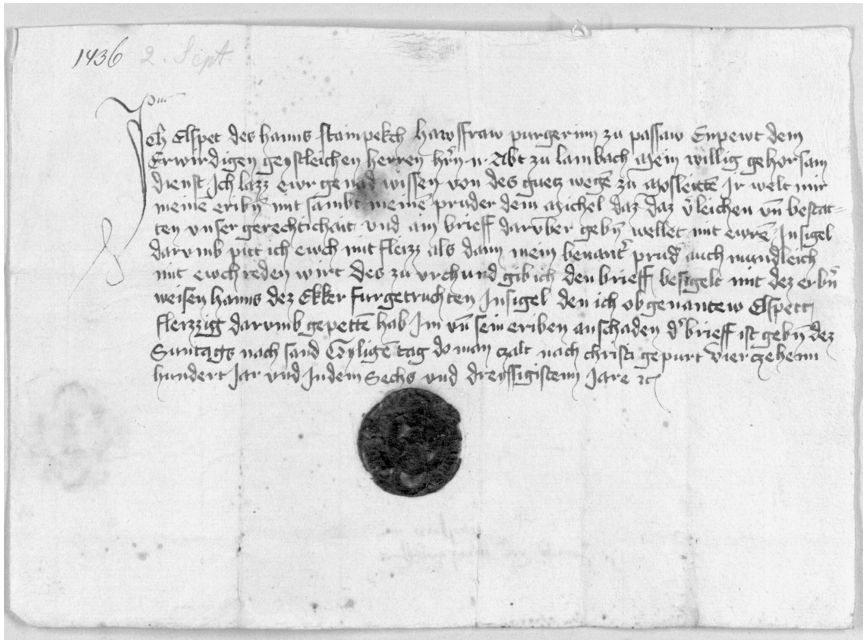 1436 2. Sept.
Ich Elspet des hanns stainpekch hawsfraw purgerinn zu passaw Enpewt dem
Erwirdigen geystleichen herren hrn n. Abt zu lambach Mein willig gehorsam
dienst Ich lazz ewr genad wissen von des guetz wegen zu Mosleitten Ir welt mir
meine eribn mit sambt meinem pruder dem Michel daz daz verleichen vnd bestat-
ten vnser gerechtichait vnd ain brieff daruber gebn wellet mit ewrem Insigel
darumb pitt ich ewch mit fleizz als dann mein benanter pruder auch mundleich
mit ewch reden wirt des zu vrchund gib ich den brieff besigelt mit dez erbern
weisen hanns dez Ekker furgetruchten Insigel den ich obgenantew Elspett
fleizzig darumb gepetten hab Im vnd sein eriben an schaden der brieff ist gebn dez
Suntags nach sand Gyligen tag do man czalt nach christi gepurt vierczehenn
hundert Jar vnd In dem Sechs vnd dreyssigistenn Jare etc